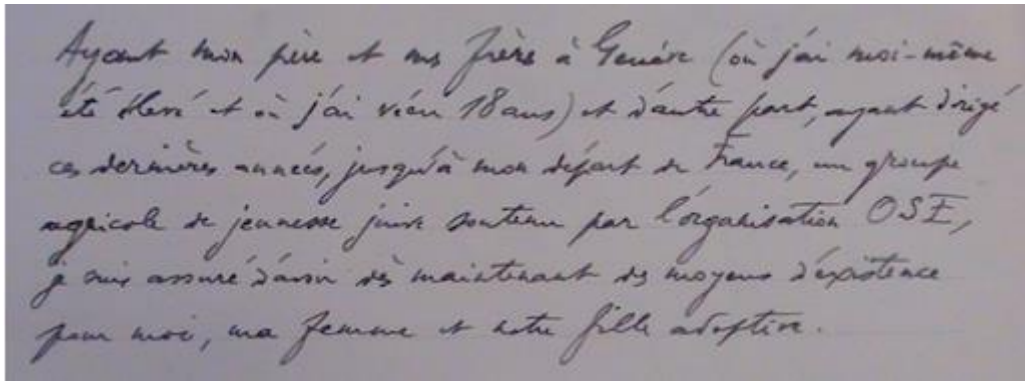 Ayant mon père et mes frères à Genève (où j'ai moi-même
été élevé et où j'ai vécu 18 ans) et d'autre part, ayant dirigé
ces dernières années, jusqu'à mon départ de France, un groupe
agricole de jeunesse juive soutenu par l'organisation OSE,
je suis assuré d'avoir dès maintenant des moyens d'existence
pour moi, ma femme et notre fille adoptive.